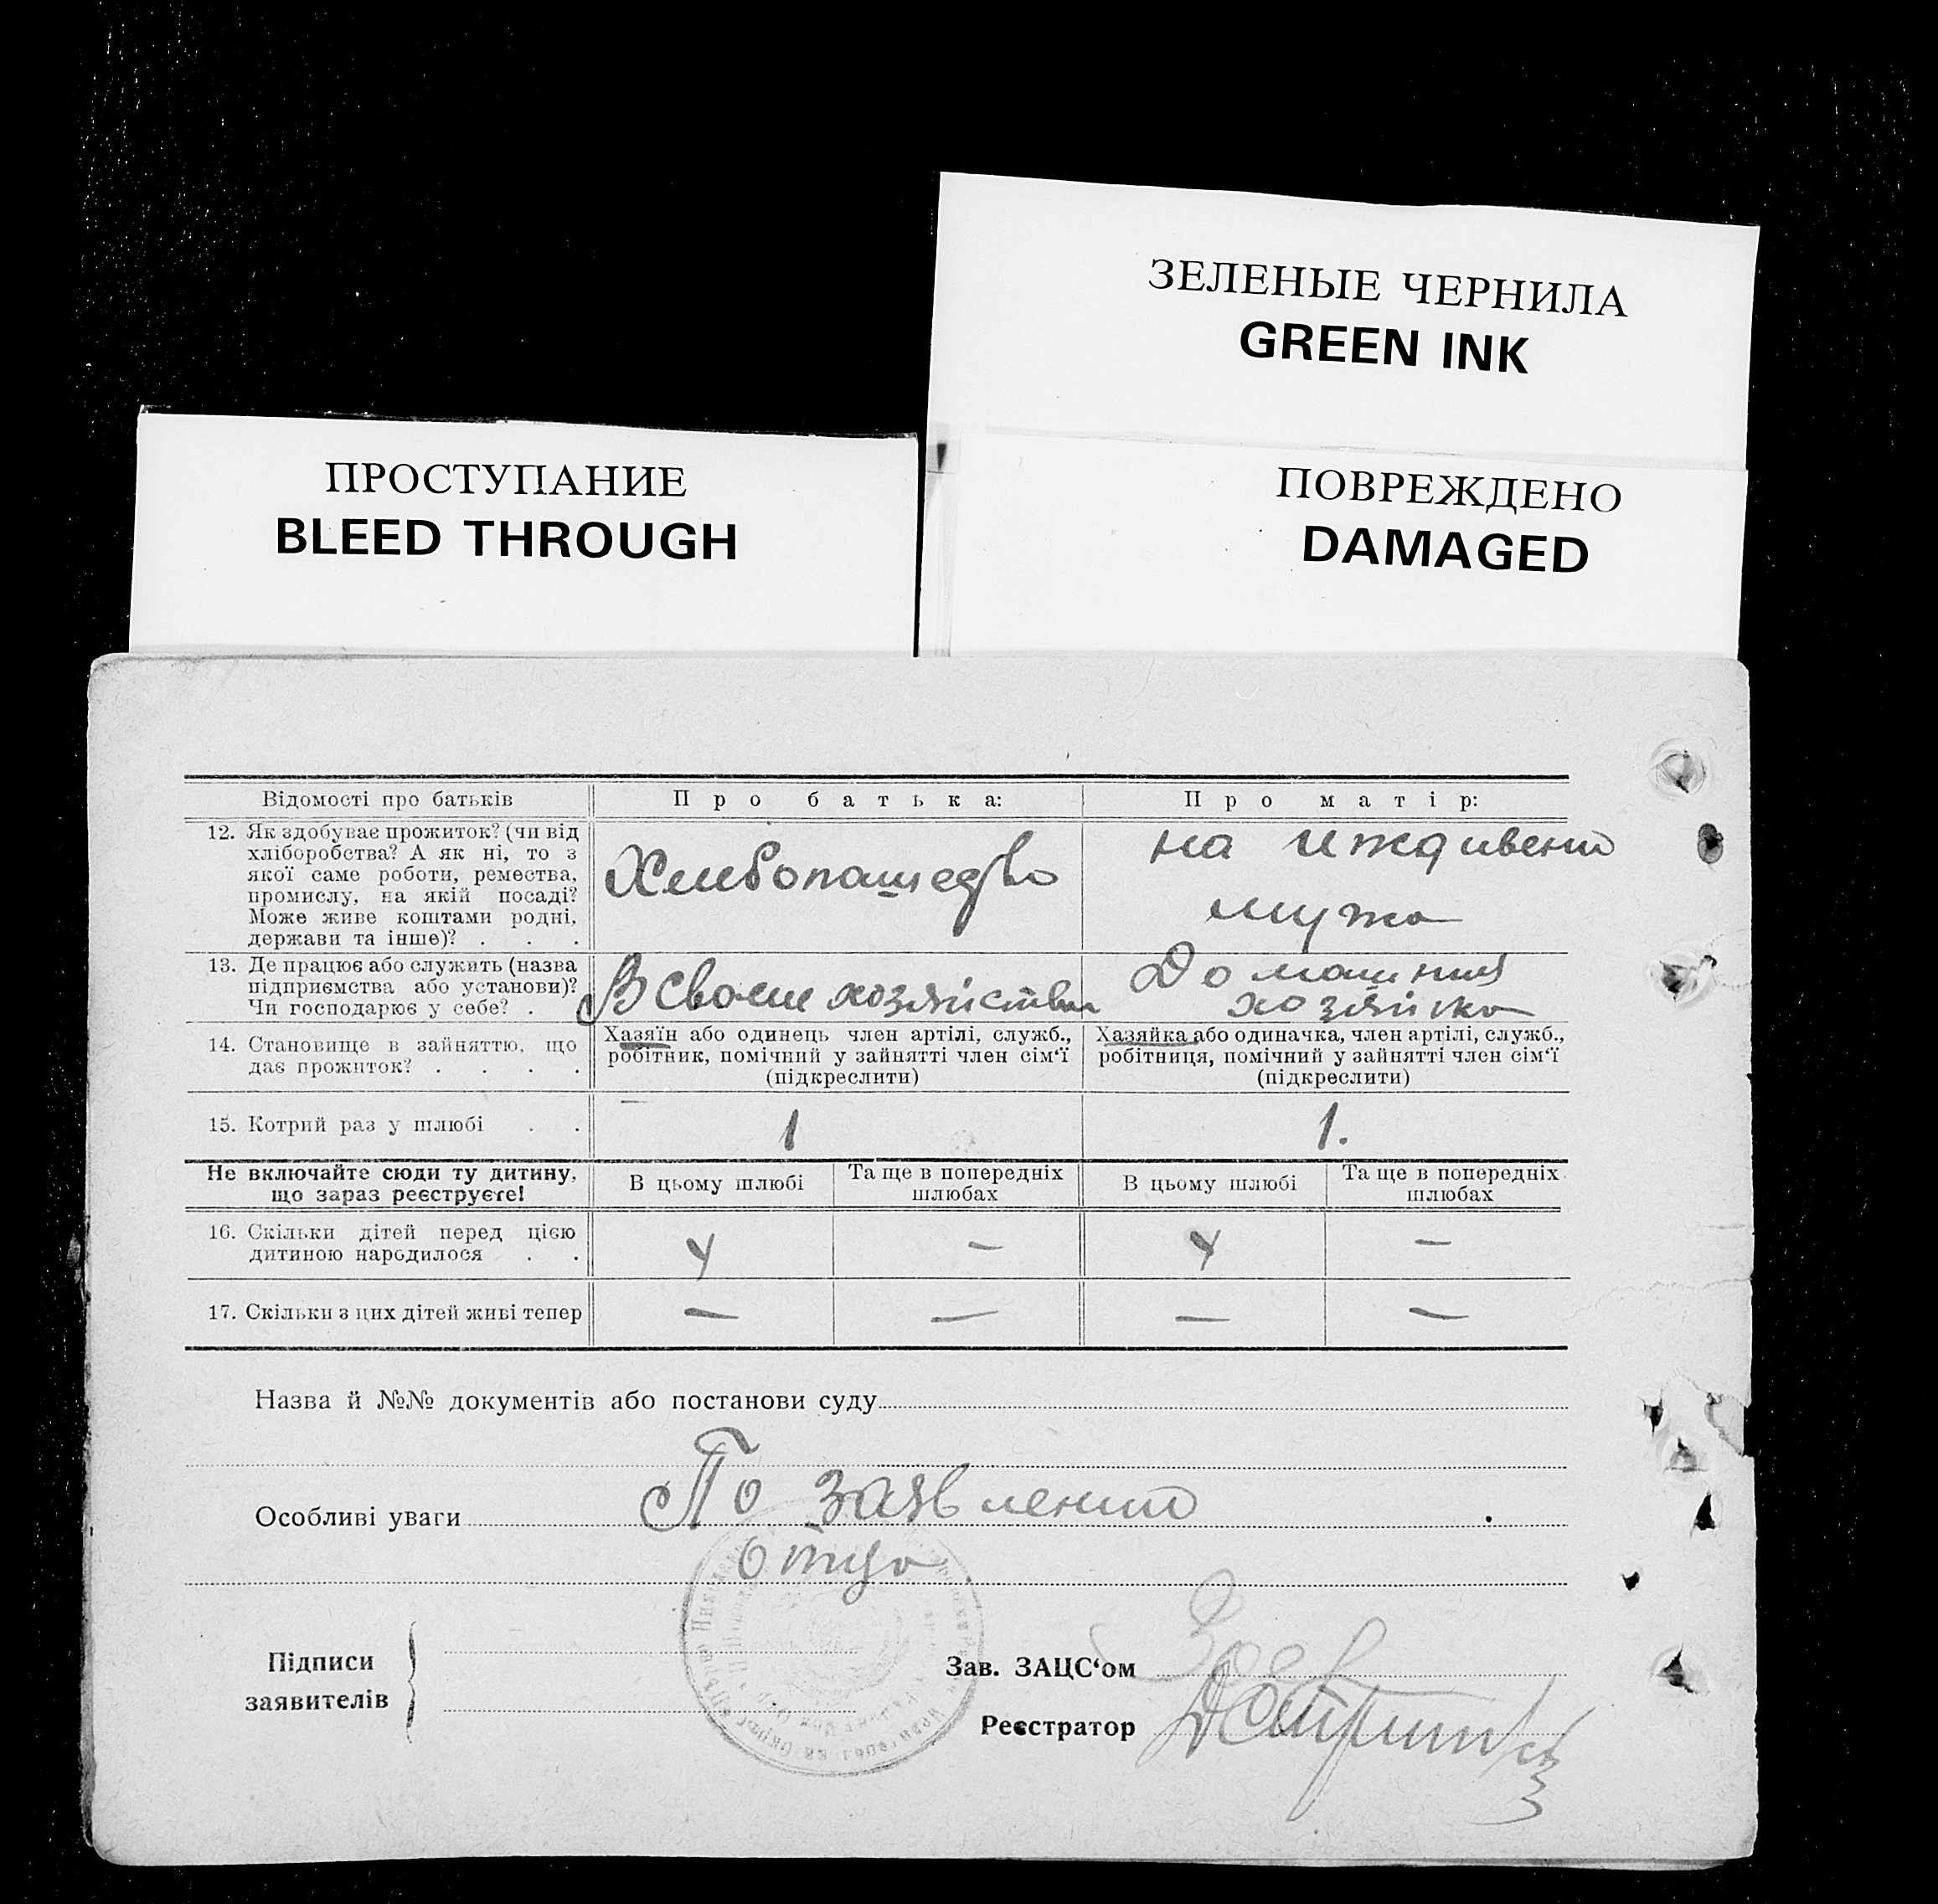 ЗЕЛЕНЫЕ ЧЕРНИЛА
GREEN INK
ПРОСТУПАНИЕ
BLEED THROUGH
ПОВРЕЖДЕНО
DAMAGED
Відомості про батьків
Про батька:
Про матір:
12. Як здобуває прожиток? (чи від
хліборобства? А як ні, то з
якої саме роботи, ремества,
промислу, на якій посаді?
Може живе коштами родні,
держави та інше)? . . .
Хлебопашедво
на иждивени
мужа
13. Де працює або служить (назва
підприємства або установи)?
Чи господарює у себе? .
В своем хозяйстве
Домашния
хозяйка
14. Становище в зайняттю, що
дає прожиток? . . . .
Хазяїн або одинець член артілі, служб.,
робітник, помічний у зайнятті член сім‘ї
(підкреслити)
Хазяйка або одиначка, член артілі, служб.,
робітниця, помічний у зайнятті член сім‘ї
(підкреслити)
15. Котрий раз у шлюбі . .
1
1.
Не включайте сюди ту дитину,
що зараз реєструєте!
В цьому шлюбі
Та ще в попередніх
шлюбах
В цьому шлюбі
Та ще в попередніх
шлюбах
16. Скільки дітей перед цією
дитиною народилося . .
4
—
4
—
17. Скільки з цих дітей живі тепер
—
—
—
—
Назва й №№ документів або постанови суду
Особливі уваги По заявлению
отца
Підписи
заявителів
Зав. ЗАЦС‘ом
Реєстратор